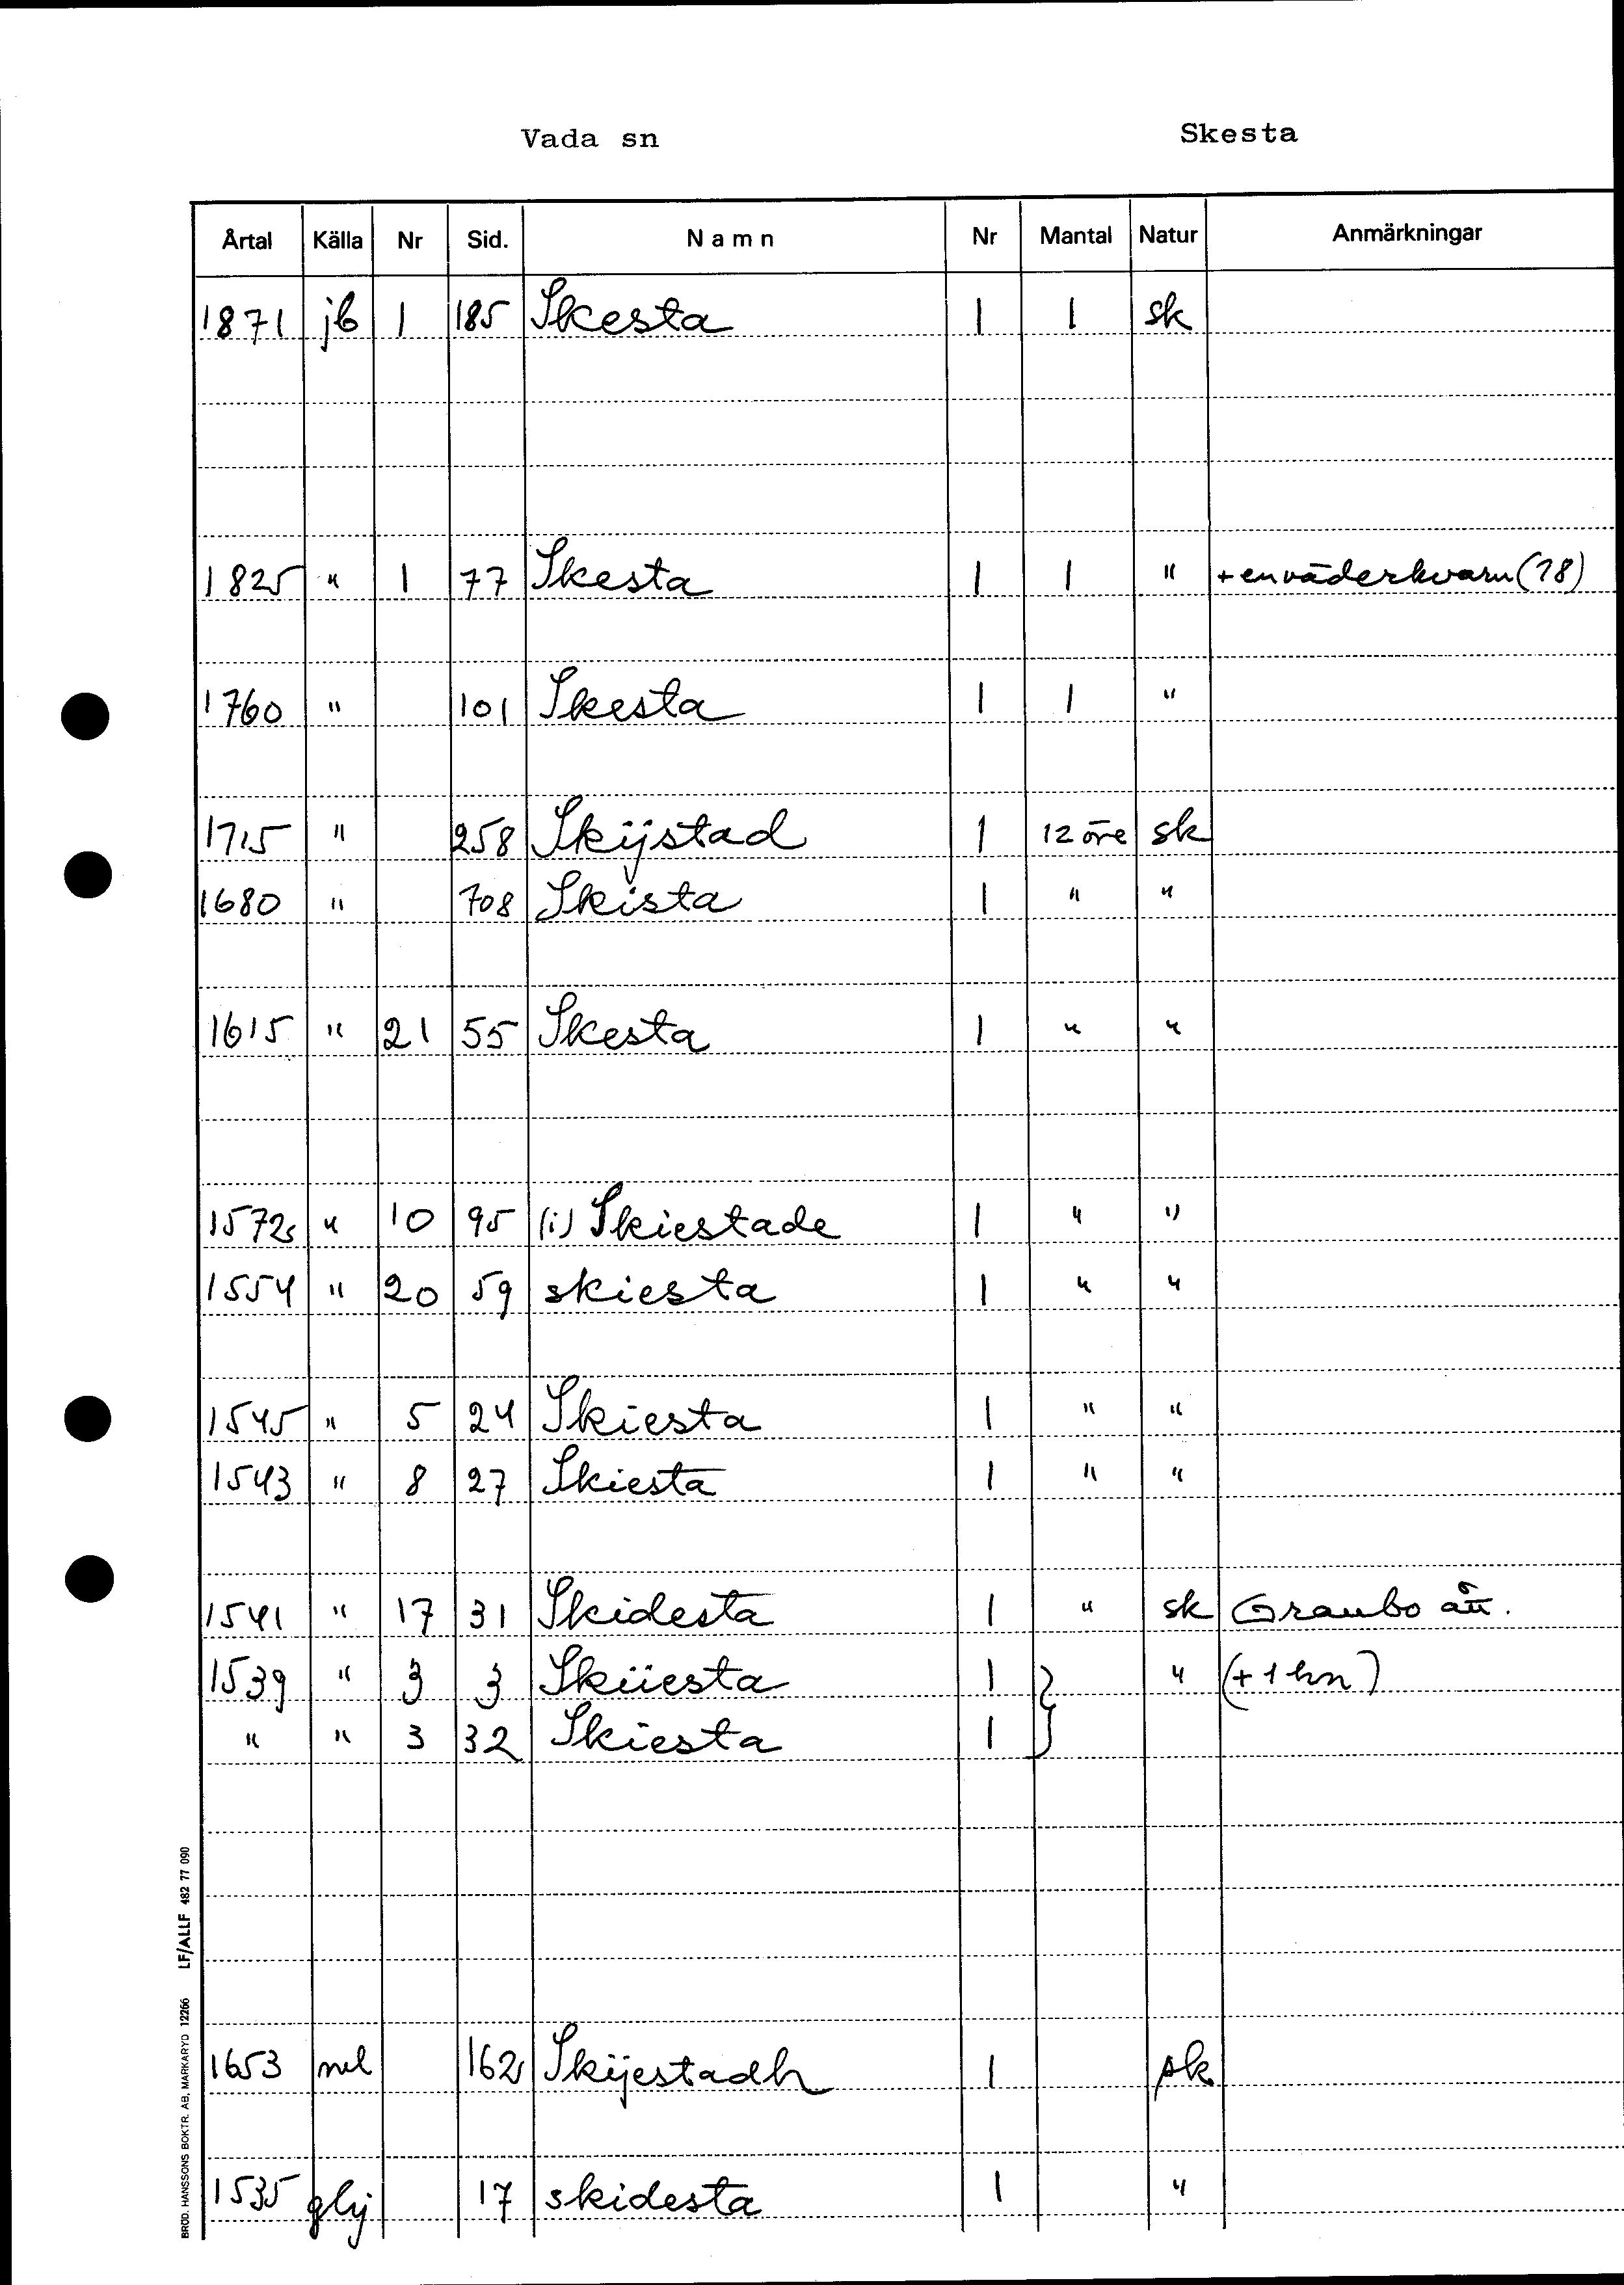 Vada sn Skesta
Årtal Källa Nr Sid. Namn Nr Mantal Natur Anmärkningar
1871 jb 1 185 Skesta 1 1 sk
1825 " 1 77 Skesta 1 1 " + en väderkvarn (78)
1760 " 101 Skesta 1 1 "
1715 " 258 Skijstad 1 12 öre sk
1680 " 708 Skista 1 " "
1615 " 21 55 Skesta 1 " "
1572 " 10 95 (i) Skiestade 1 " "
1554 " 20 59 skiesta 1 " "
1545 " 5 24 Skiesta 1 " "
1543 " 8 27 Skiesta 1 " "
1541 " 17 31 Skidesta 1 " sk Graubo
1539 " 3 3 Skiiesta 1 } " (+ 1 hn)
" " 3 32 Skiesta 1
1653 ml 162 Skijestadh 1 sk
1535 ghj 17 skidesta 1 "
BRÖD. HANSSONS BOKTR. AB, MARKARYD 12266 LF/ALLF 482 77 090